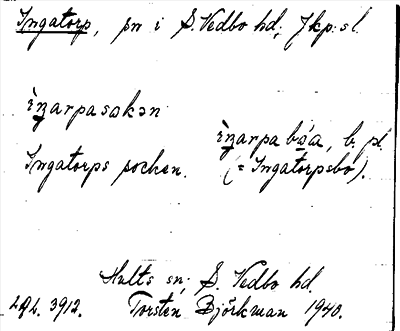 Ingatorp, sn i S. Vedbo hd, Jkp:sl.
Ingatorps socken.
b. pl.
(= Ingatorpsbo).
Hults sn, S. Vedbo hd.
3912. Torsten Björkman 1940.